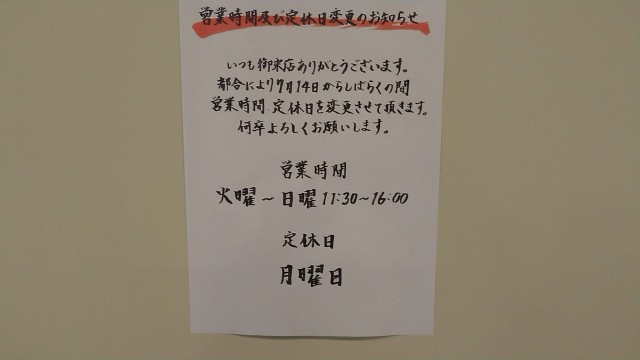 営業時間及び定休日変更のお知らせ
いつも御来店ありがとうございます。
都合により7月14日からしばらくの間
営業時間 定休日を変更させて頂きます。
何卒よろしくお願いします。
営業時間
火曜～日曜 11:30～16:00
定休日
月曜日